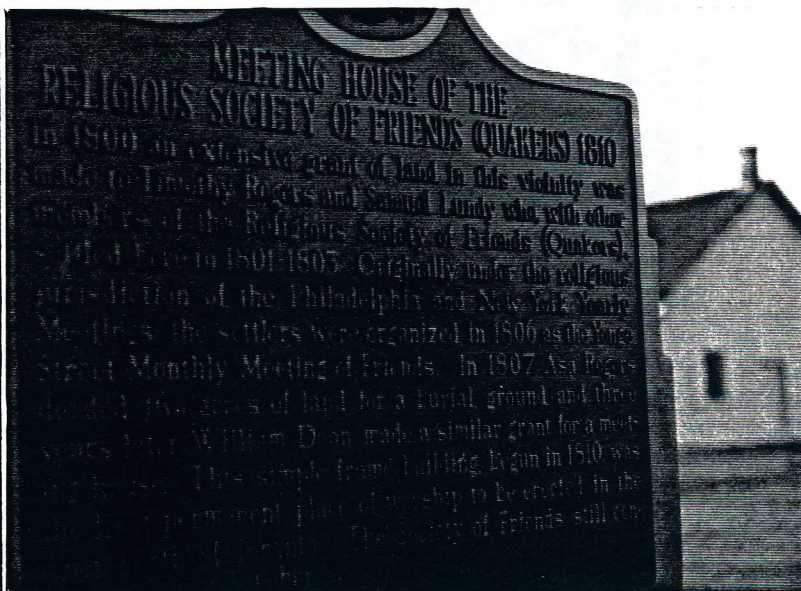 MEETING HOUSE OF THE
RELIGIOUS SOCIETY OF FRIENDS (QUAKERS) 1810
In 1800 an extensive grant of land in this vicinity was
made to Timothy Rogers and Samuel Lundy who, with other
members of the Religious Society of Friends (Quakers),
settled here in 1801-1803. Originally under the religious
jurisdiction of the Philadelphia and New York Yearly
Meetings, the settlers were organized in 1806 as the Yonge
Street Monthly Meeting of Friends. In 1807 Asa Rogers
deeded two acres of land for a burial ground and three
years later William Doan made a similar grant for a meet-
ing house. This simple frame building, begun in 1810 was
the first permanent place of worship to be erected in the
The Society of Friends still con-